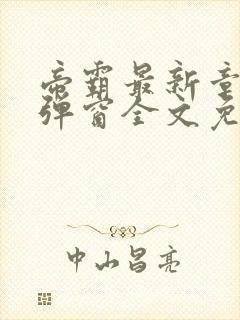 帝霸最新章
弹窗全文免
中山昌亮